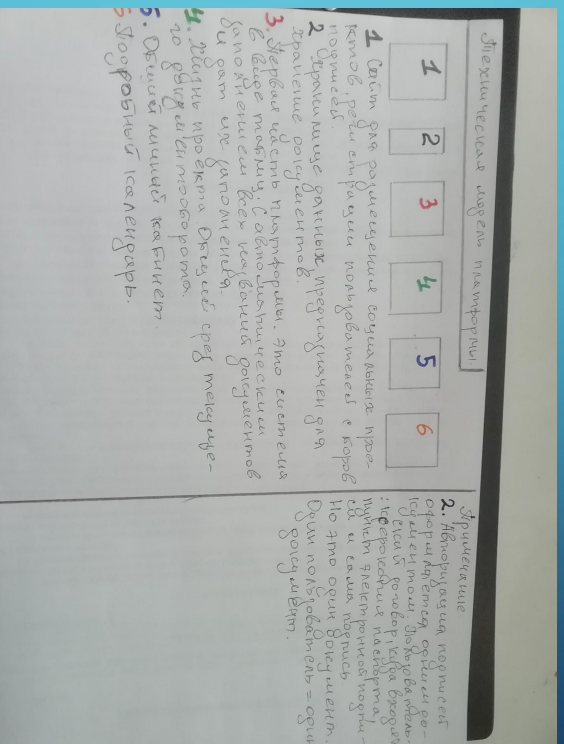 Техническая модель платформы.
1 2 3 4 5 6
1 Сайт для размещения социальных прое-
ктов, регистрации пользователей с боров
подписей.
2 Хранилище данных, предназначен для
хранение документов.
3. Первая часть платформы. Это система
в виде таблиц, с автоматическим
заполнением всех названий документов
и дат их заполнения.
4. Жизнь проекта Общий срез текуще-
го документооборота.
5. Общий личный кабинет.
6 Подробный календарь.
Примечание
2. Авторизация подписей
оформляется одним до-
кументом. Пользователь-
ский договор, куда входят
: ксерокопия паспорта,
пункт электронной подпи-
си и сама подпись
Но это один документ.
Один пользователь = один
документ.